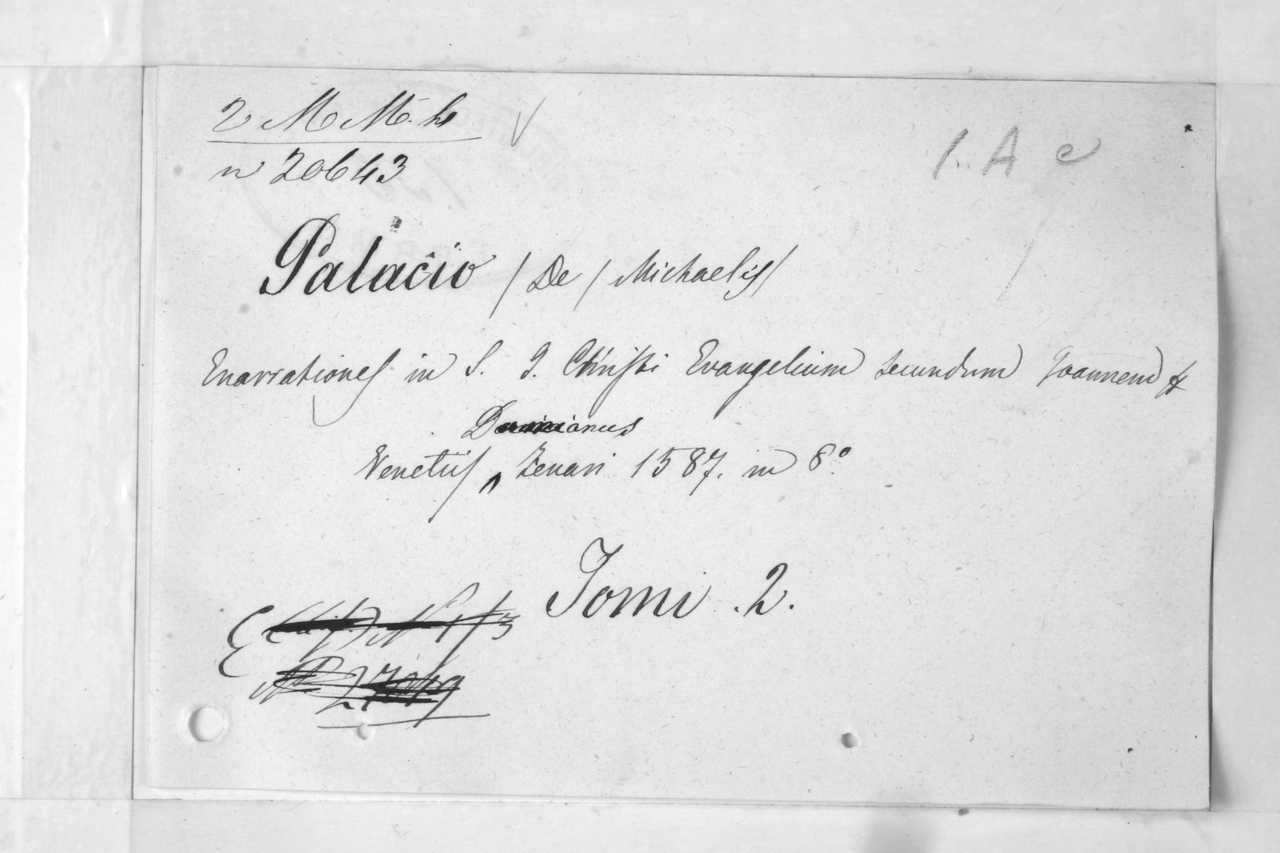 2 M M. h
n 20643
1. A e
Palacio (De) Michaelis)
Enarrationes in S. J. Christi Evangelium secundum Joannem &
Venetiis, Zenari 1587. in 8.°
Tomi .2.